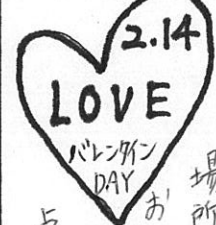 2.14
LOVE
バレンタイン
DAY
場所
お